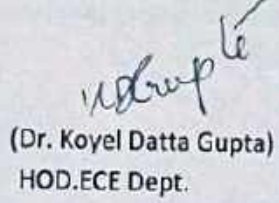 (Dr. Koyel Datta Gupta)
HOD.ECE Dept.